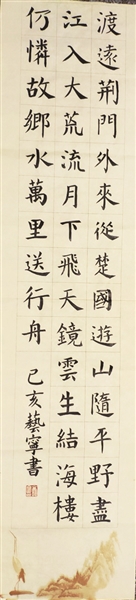 渡遠荆門外來從楚國遊山隨平野盡
江入大荒流月下飛天鏡雲生結海樓
仍憐故鄉水萬里送行舟 己亥藝寧書